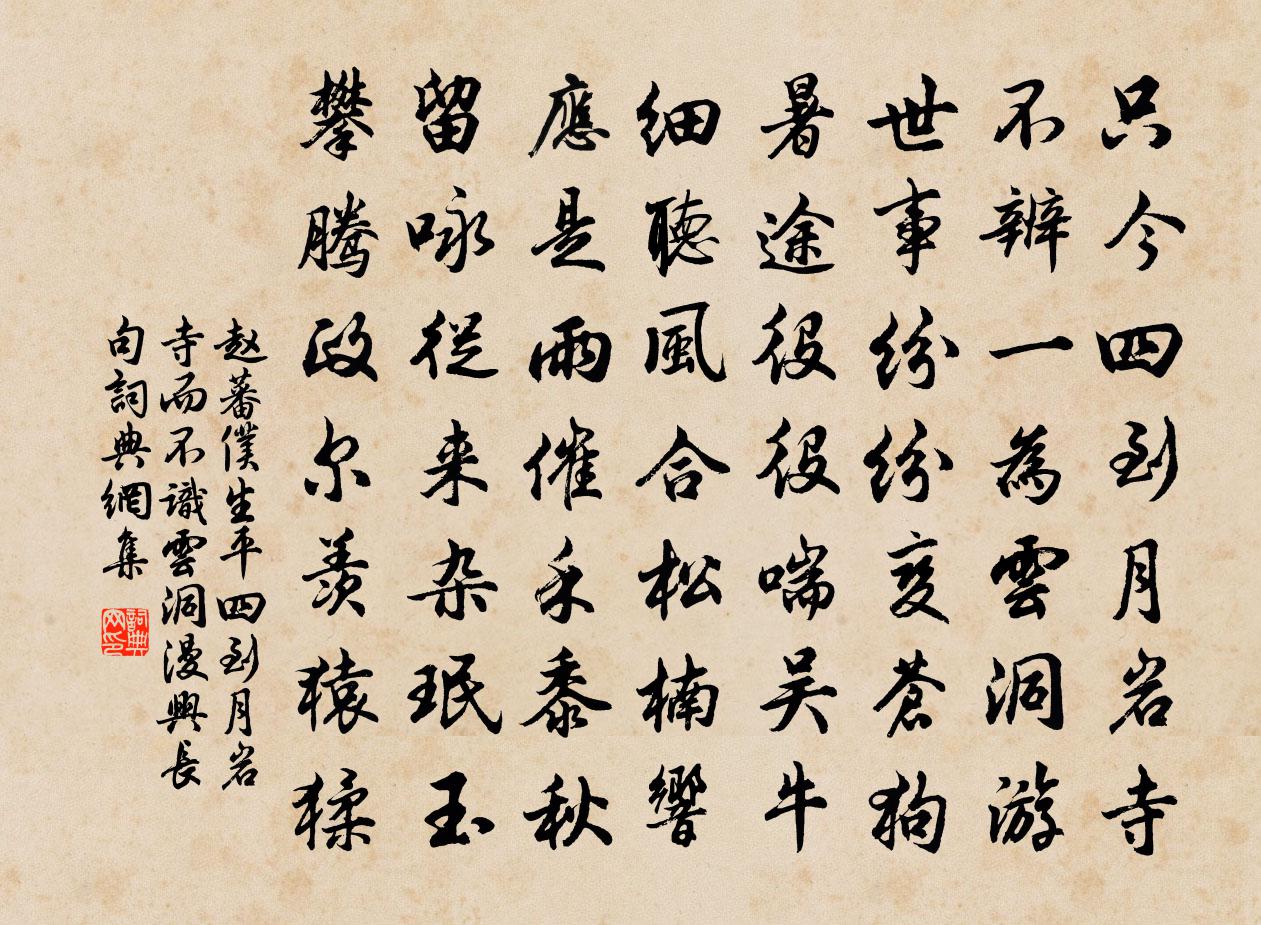 只今四到月岩寺
不辨一為雲洞游
世事紛紛变蒼狗
暑途役役喘吴牛
細聽風合松楠響
應是雨催禾黍秋
留咏從来杂珉玉
攀腾政尔羡猿猱
赵蕃僕生平四到月岩
寺而不識雲洞漫興長
句詞典網集
詞典网印